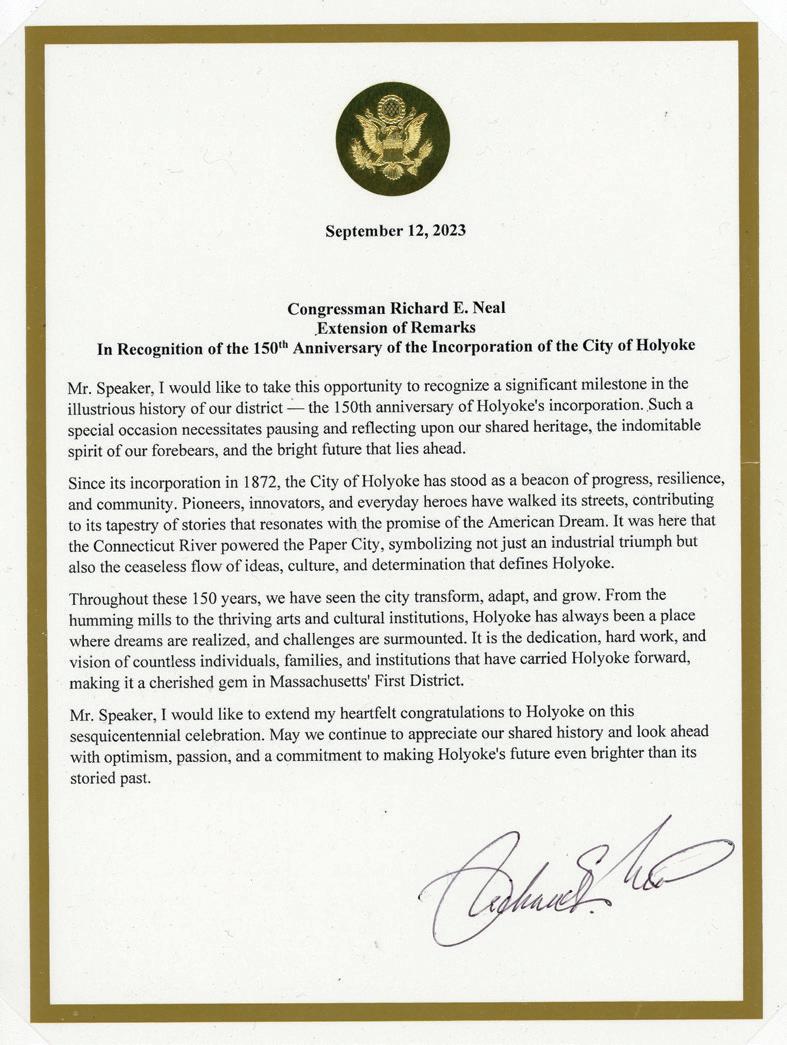 September 12, 2023
Congressman Richard E. Neal
Extension of Remarks
In Recognition of the 150th Anniversary of the Incorporation of the City of Holyoke
Mr. Speaker, I would like to take this opportunity to recognize a significant milestone in the
illustrious history of our district — the 150th anniversary of Holyoke's incorporation. Such a
special occasion necessitates pausing and reflecting upon our shared heritage, the indomitable
spirit of our forebears, and the bright future that lies ahead.
Since its incorporation in 1872, the City of Holyoke has stood as a beacon of progress, resilience,
and community. Pioneers, innovators, and everyday heroes have walked its streets, contributing
to its tapestry of stories that resonates with the promise of the American Dream. It was here that
the Connecticut River powered the Paper City, symbolizing not just an industrial triumph but
also the ceaseless flow of ideas, culture, and determination that defines Holyoke.
Throughout these 150 years, we have seen the city transform, adapt, and grow. From the
humming mills to the thriving arts and cultural institutions, Holyoke has always been a place
where dreams are realized, and challenges are surmounted. It is the dedication, hard work, and
vision of countless individuals, families, and institutions that have carried Holyoke forward,
making it a cherished gem in Massachusetts' First District.
Mr. Speaker, I would like to extend my heartfelt congratulations to Holyoke on this
sesquicentennial celebration. May we continue to appreciate our shared history and look ahead
with optimism, passion, and a commitment to making Holyoke's future even brighter than its
storied past.
Richard E. Neal